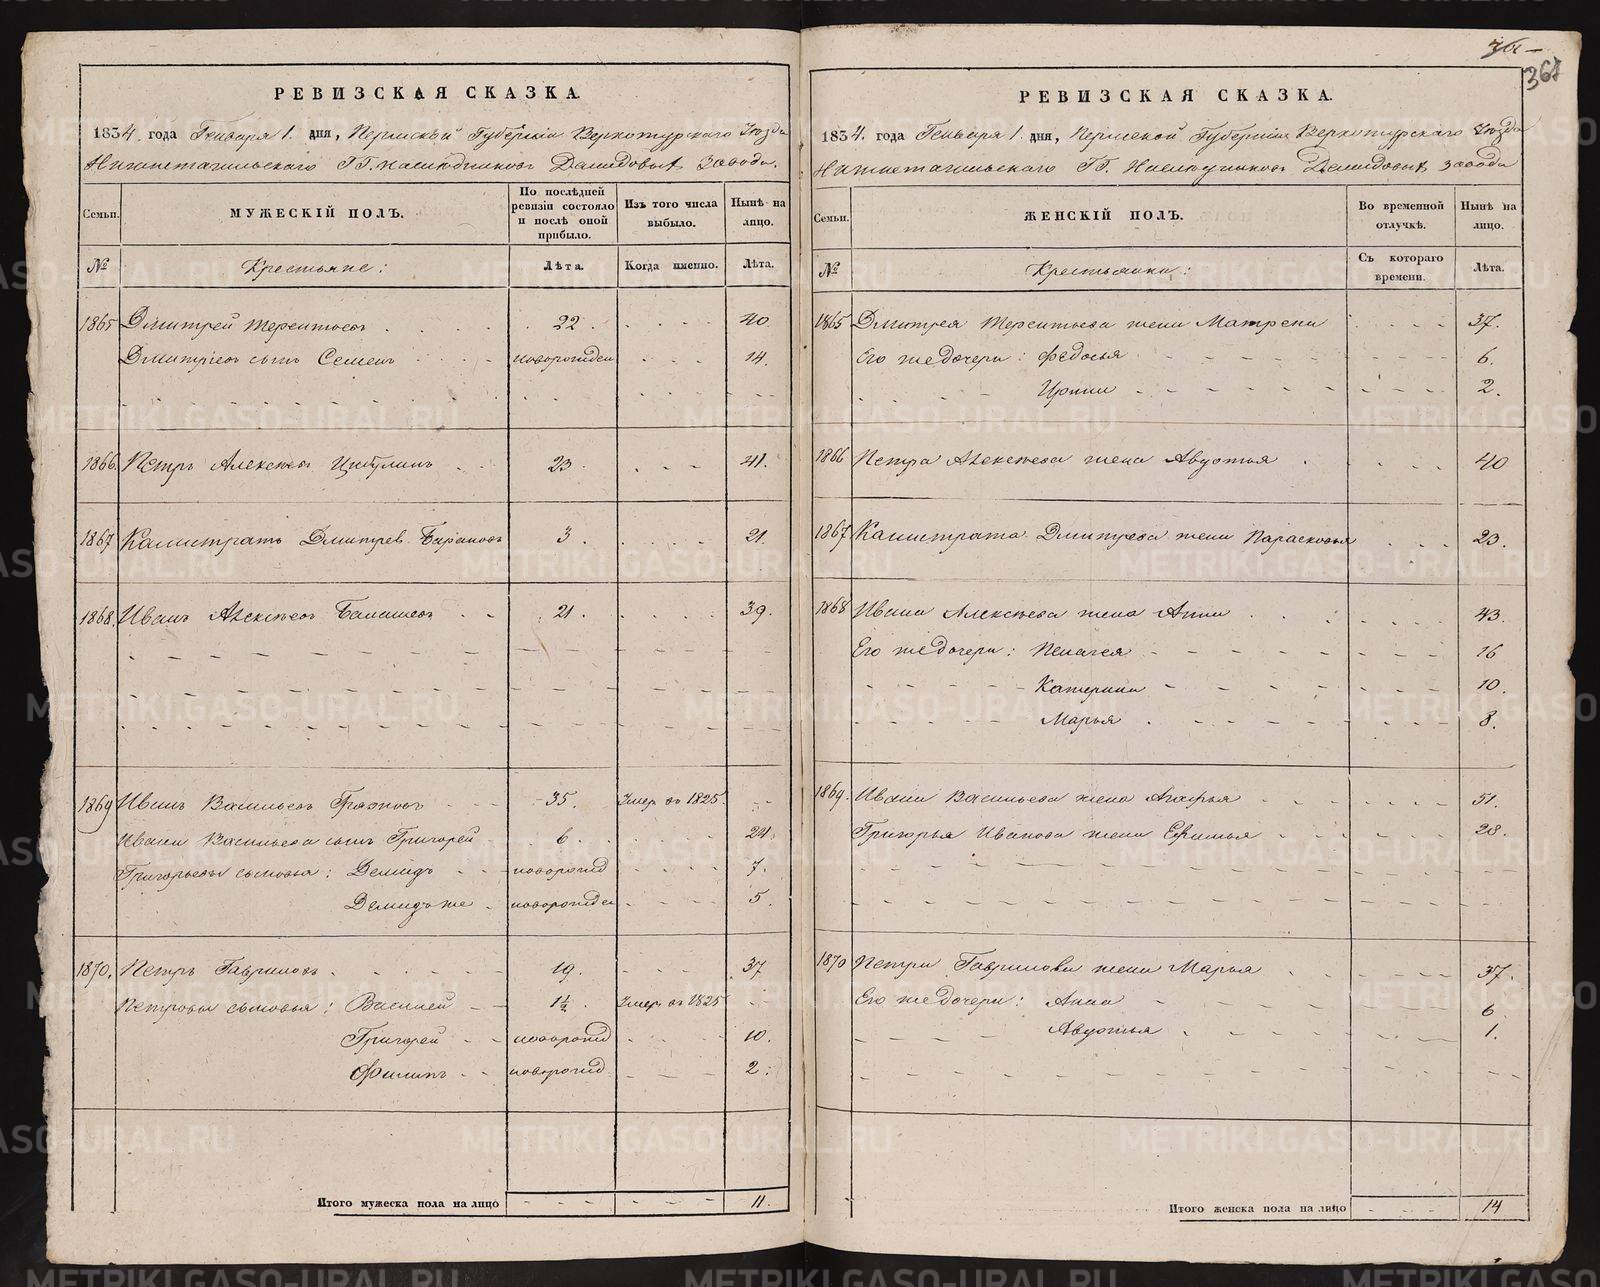 361
367
РЕВИЗСКАЯ СКАЗКА.
1834. года Генваря 1. дня, Пермской Губерніи Верхотурскаго Уѣзда
Нижнетагильскаго ГГ. наслѣдниковъ Демидовыхъ завода.
Семьи.
МУЖЕСКІЙ ПОЛЪ.
По послѣдней ревизіи состояло и послѣ оной прибыло.
Изъ того числа выбыло.
Нынѣ на лицо.
№
Крестьяне:
Лѣта.
Когда именно.
Лѣта.
1865 Дмитрей Терентьевъ 22. 40
Дмитріевъ сынъ Семенъ новорожден 14.
1866. Петръ Алексѣевъ 23 41.
1867 Калистратъ Дмитрев Барановъ 3. 21.
1868. Иванъ Алексѣевъ Балашевъ 21. 39.
1869 Иванъ Васильевъ 35. Умер въ 1825.
Ивана Васильева сынъ Григорей 6 24.
Григорьевы сыновья: Демидъ новорожд 7.
Демидъ же новорожден 5.
1870. Петръ Гавриловъ 19. 37
Петровы сыновья: Василей 1½. Умер въ 1825
Григорей новорожд 10.
Филипъ новорожд. 2.
Итого мужеска пола на лицо 11.
РЕВИЗСКАЯ СКАЗКА.
1834. года Генваря 1. дня, Пермской Губерніи Верхотурскаго Уѣзда
Нижнетагильскаго ГГ. Наслѣдниковъ Демидовыхъ завода
Семьи.
ЖЕНСКІЙ ПОЛЪ.
Во временной отлучкѣ.
Нынѣ на лицо.
№
Крестьянки:
Съ котораго времени.
Лѣта.
1865 Дмитрея Терентьева жена Матрена 37.
Его же дочери: Федосья 6.
Ирина 2.
1866 Петра Алексѣева жена Авдотья 40
1867 Калистрата Дмитрева жена Парасковья 23.
1868 Ивана Алексѣева жена Анна 43.
Его же дочери: Пелагея 16
Катерина 10.
Марья 8.
1869. Ивана Васильева жена Агафья 51.
Григорья Иванова жена Ефимья 28.
1870 Петра Гаврилова жена Марья 37.
Его же дочери: Анна 6
Авдотья 1.
Итого женска пола на лицо 14
METRIKI.GASO-URAL.RU